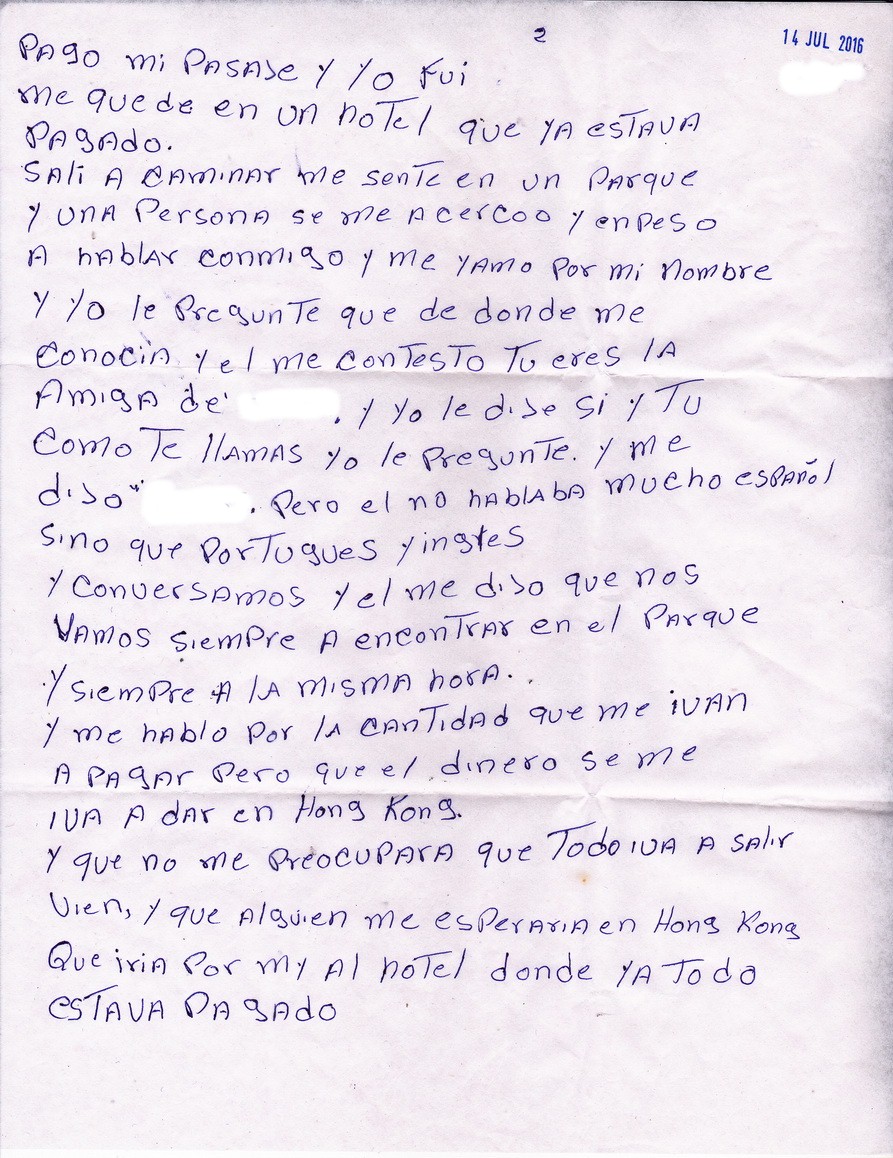 2
14 JUL 2016
Pago mi Pasaje y yo fui.
me quede en un hotel que ya estava
Pagado.
Sali a caminar me sente en un Parque
y una Persona se me acercoo y enpeso
a hablar conmigo y me yamo por mi nombre
y yo le Pregunte que de donde me
conocia y el me contesto Tu eres la
Amiga de . y yo le dije si y Tu
como Te llamas yo le Pregunte. y me
dijo " . Pero el no hablaba mucho español
sino que Portugues y ingles
y conversamos y el me dijo que nos
vamos siempre a encontrar en el Parque
y siempre a la misma hora..
y me hablo por la cantidad que me ivan
a pagar Pero que el dinero se me
iva a dar en Hong Kong.
y que no me Preocupara que Todo iva a salir
vien, y que alguien me esperaria en Hong Kong
Que iria por my al hotel donde ya Todo
estava Pagado